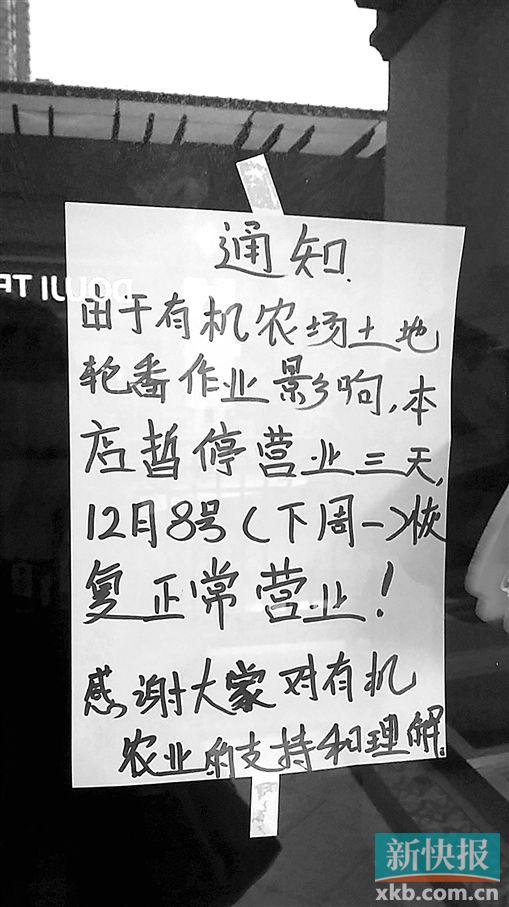 通知
由于有机农场土地
轮番作业影响,本
店暂停营业三天,
12月8号(下周一)恢
复正常营业!
感谢大家对有机
农业的支持和理解.
新快报
xkb.com.cn